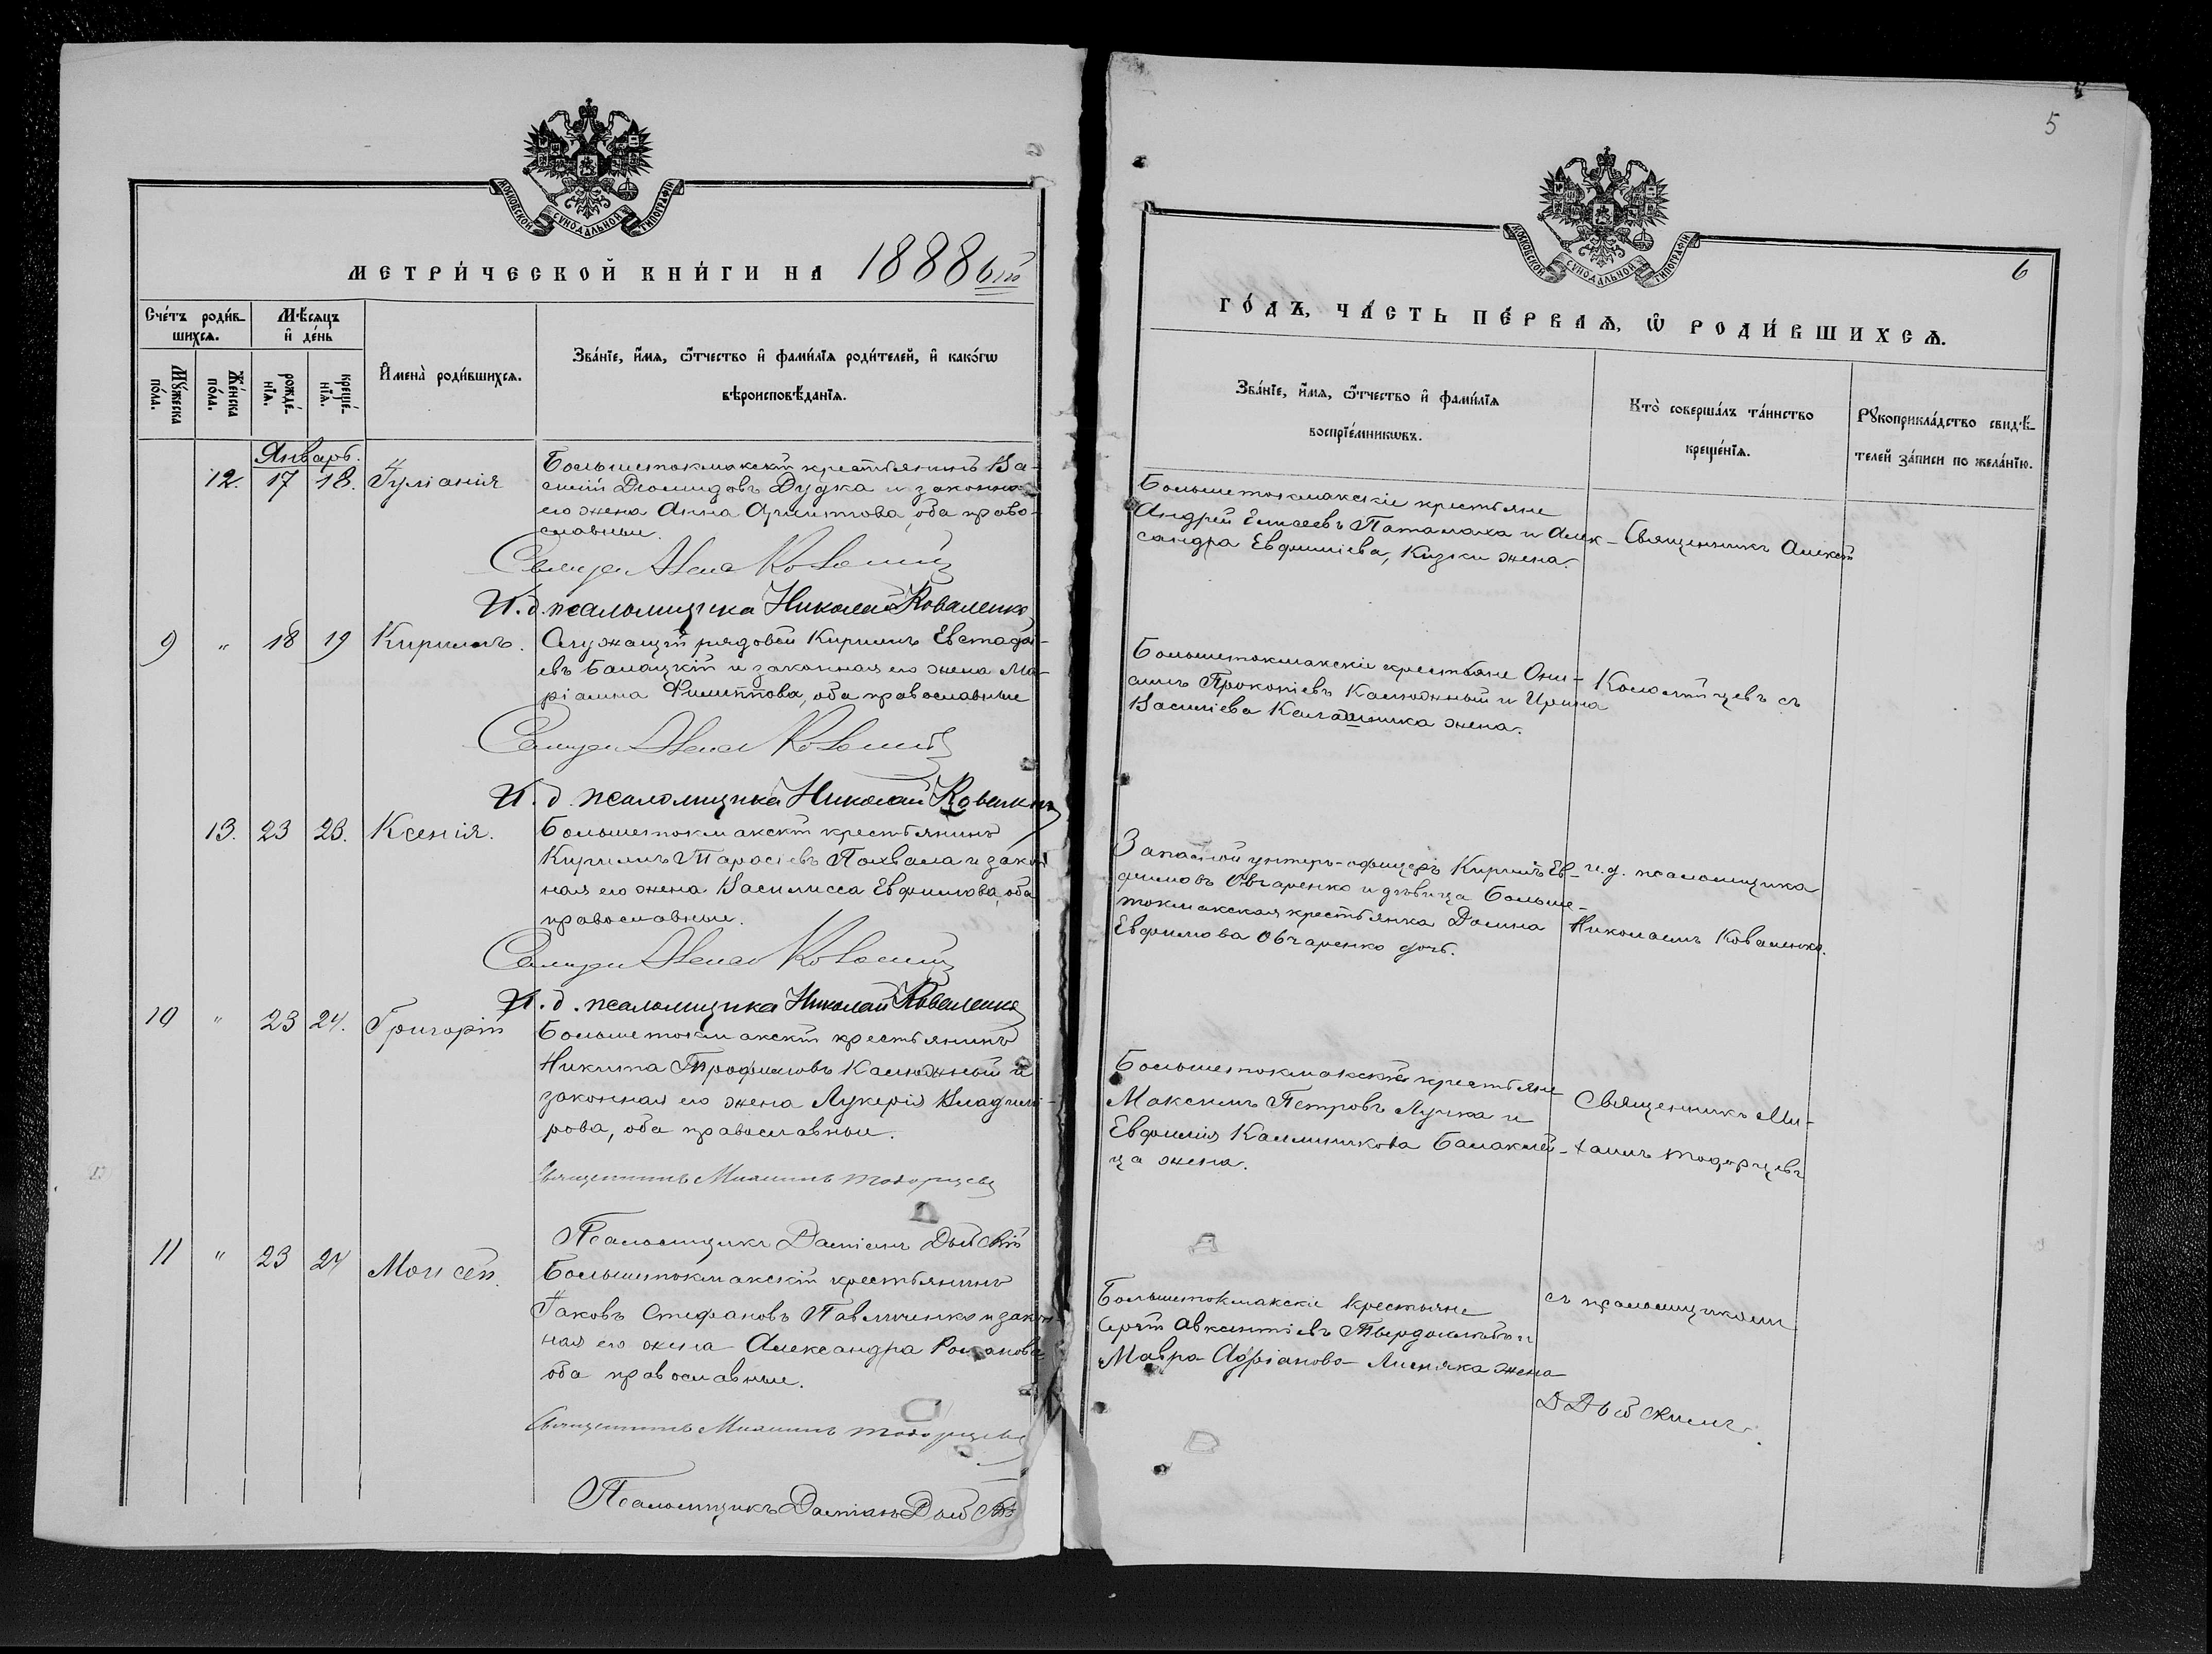 МОСКОВСКОЙ СУНОДАЛЬНОЙ ТИПОГРАФІИ
МЕТРИ́ЧЕСКОЙ КНИ́ГИ НА 1888 ый
Сче́тъ роди́в-
шихсѧ.
Мѣ́сѧцъ
и҆ де́нь
Мꙋ́жеска
по́ла.
Же́нска
по́ла.
рожде́-
нїѧ.
креще́-
нїѧ.
И҆мена̀ роди́вшихсѧ.
Зва́нїе, и҆́мѧ, ѻ҆́тчество и҆ фами́лїѧ роди́телей, и҆ како́гѡ
вѣроисповѣ́данїѧ.
Январь.
12. 17 18. Іуліанія
Большетокмакскій крестьянинъ Ва-
силій Діомидовъ Дудка и законная
его жена Анна, оба право-
славные.
И. д. псаломщика Николай Коваленко
9 " 18 19 Кириллъ.
Служащій рядовой Кириллъ Евстафі-
евъ Балацкій и законная его жена Ма-
ріамна Филиппова, оба православные
И. д. псаломщика Николай Коваленко
13. 23 23. Ксенія.
Большетокмакскій крестьянинъ
Кириллъ Тарасіевъ Похвала и закон
ная его жена Василисса Евфимова, оба
православные.
И. д. псаломщика Николай Коваленко
10 " 23 24. Григорій
Большетокмакскій крестьянинъ
Никита Трофимовъ Калюжный и
законная его жена Лукерія Владими-
рова, оба православные.
Священникъ Михаилъ Тодорцевъ
Псаломщикъ Даміанъ
11 " 23 24 Моисей.
Большетокмакскій крестьянинъ
Іаковъ Стефановъ Павличенко и закон-
ная его жена Александра Романова
оба православные.
Священникъ Михаилъ Тодорцевъ
Псаломщикъ Даміанъ
5
МОСКОВСКОЙ СУНОДАЛЬНОЙ ТИПОГРАФІИ
6
ГО́ДЪ, ЧА́СТЬ ПЕ́РВАѦ, Ѡ҆ РОДИ́ВШИХСѦ.
Зва́нїе, и҆́мѧ, ѻ҆́тчество и҆ фами́лїѧ
воспрїе́мникѡвъ.
Кто̀ соверша́лъ та́инство
креще́нїѧ.
Рꙋкоприкла́дство свидѣ́-
телей за́писи по жела́нїю.
Большетокмакскіе крестьяне
Андрей Елисеевъ Паталаха и Алек-
сандра Евфиміева, Кизки жена.
Священникъ Алексій
Большетокмакскіе крестьяне Они-
симъ Прокопіевъ Калюжный и Ирина
Василіева Калашника жена.
Коломійцевъ съ
Запасной унтеръ-офицеръ Кириллъ Ев-
фимовъ Овчаренко и дѣвица больше-
токмакская крестьянка Домна
Евфимова Овчаренко дочь.
и. д. псаломщика
Николаемъ Коваленко.
Большетокмакскіе крестьяне
Максимъ Петровъ Лучка и
Евфимія Каллиникова Балаклій-
ца жена.
Священникъ Ми-
хаилъ Тодорцевъ
Большетокмакскіе крестьяне
Сергій Авксентіевъ Твердохлѣбъ и
Мавра Адріанова Лисняка жена
съ псаломщикомъ